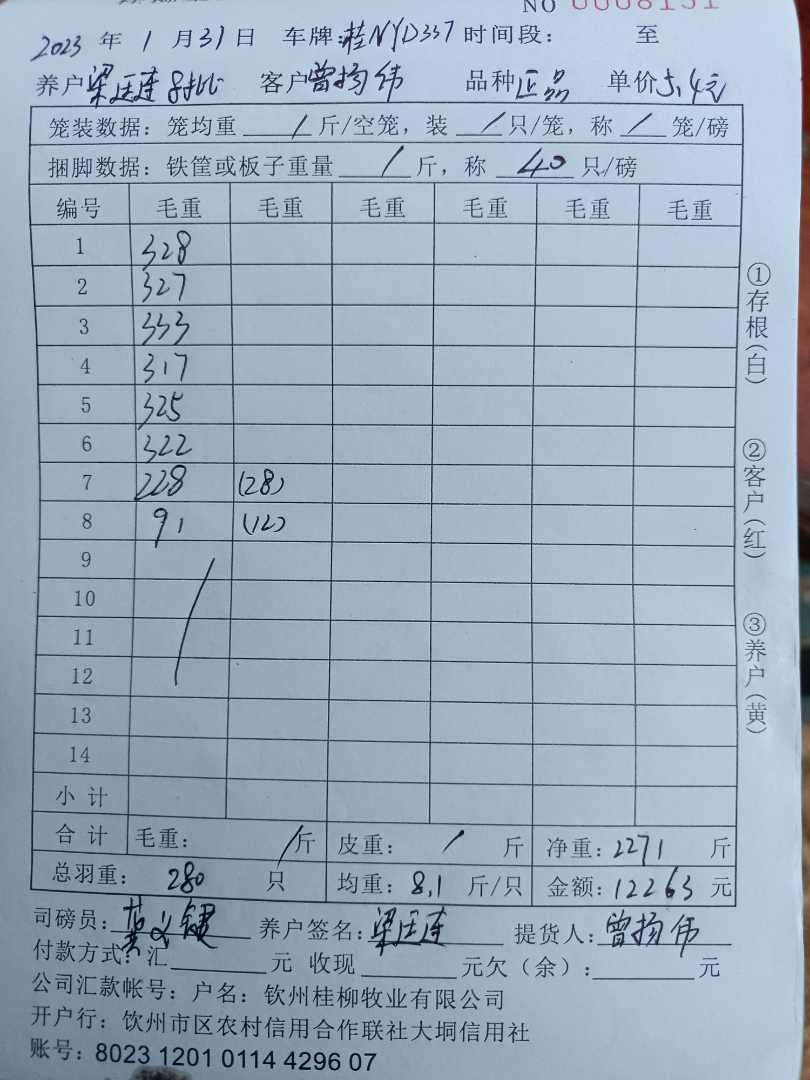 NO 0008151
2023 年 1 月 31 日 车牌:桂NYD337 时间段: 至
养户 梁匡连 8批 客户 曾扬伟 品种 匹品 单价 5.4元
笼装数据: 笼均重 / 斤/空笼, 装 / 只/笼, 称 / 笼/磅
捆脚数据: 铁筐或板子重量 / 斤, 称 40 只/磅
编号 毛重 毛重 毛重 毛重 毛重 毛重
1 328
2 327
3 333
4 317
5 325
6 322
7 228 (28)
8 91 (12)
9
10
11
12
13
14
小计
合计 毛重: / 斤 皮重: / 斤 净重: 2271 斤
总羽重: 280 只 均重: 8.1 斤/只 金额: 12263 元
司磅员: 黄义键 养户签名: 梁匡连 提货人: 曾扬伟
付款方式: 汇 元 收现 元欠(余): 元
公司汇款帐号: 户名: 钦州桂柳牧业有限公司
开户行: 钦州市区农村信用合作联社大垌信用社
账号: 8023 1201 0114 4296 07
①存根(白)
②客户(红)
③养户(黄)